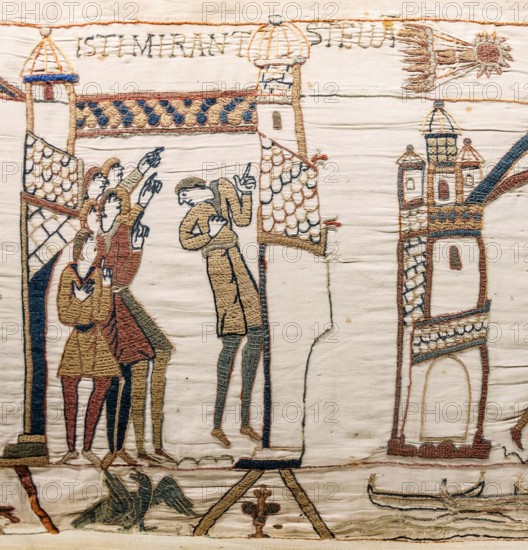 ISTI MIRANT STELLA
PHOTO12